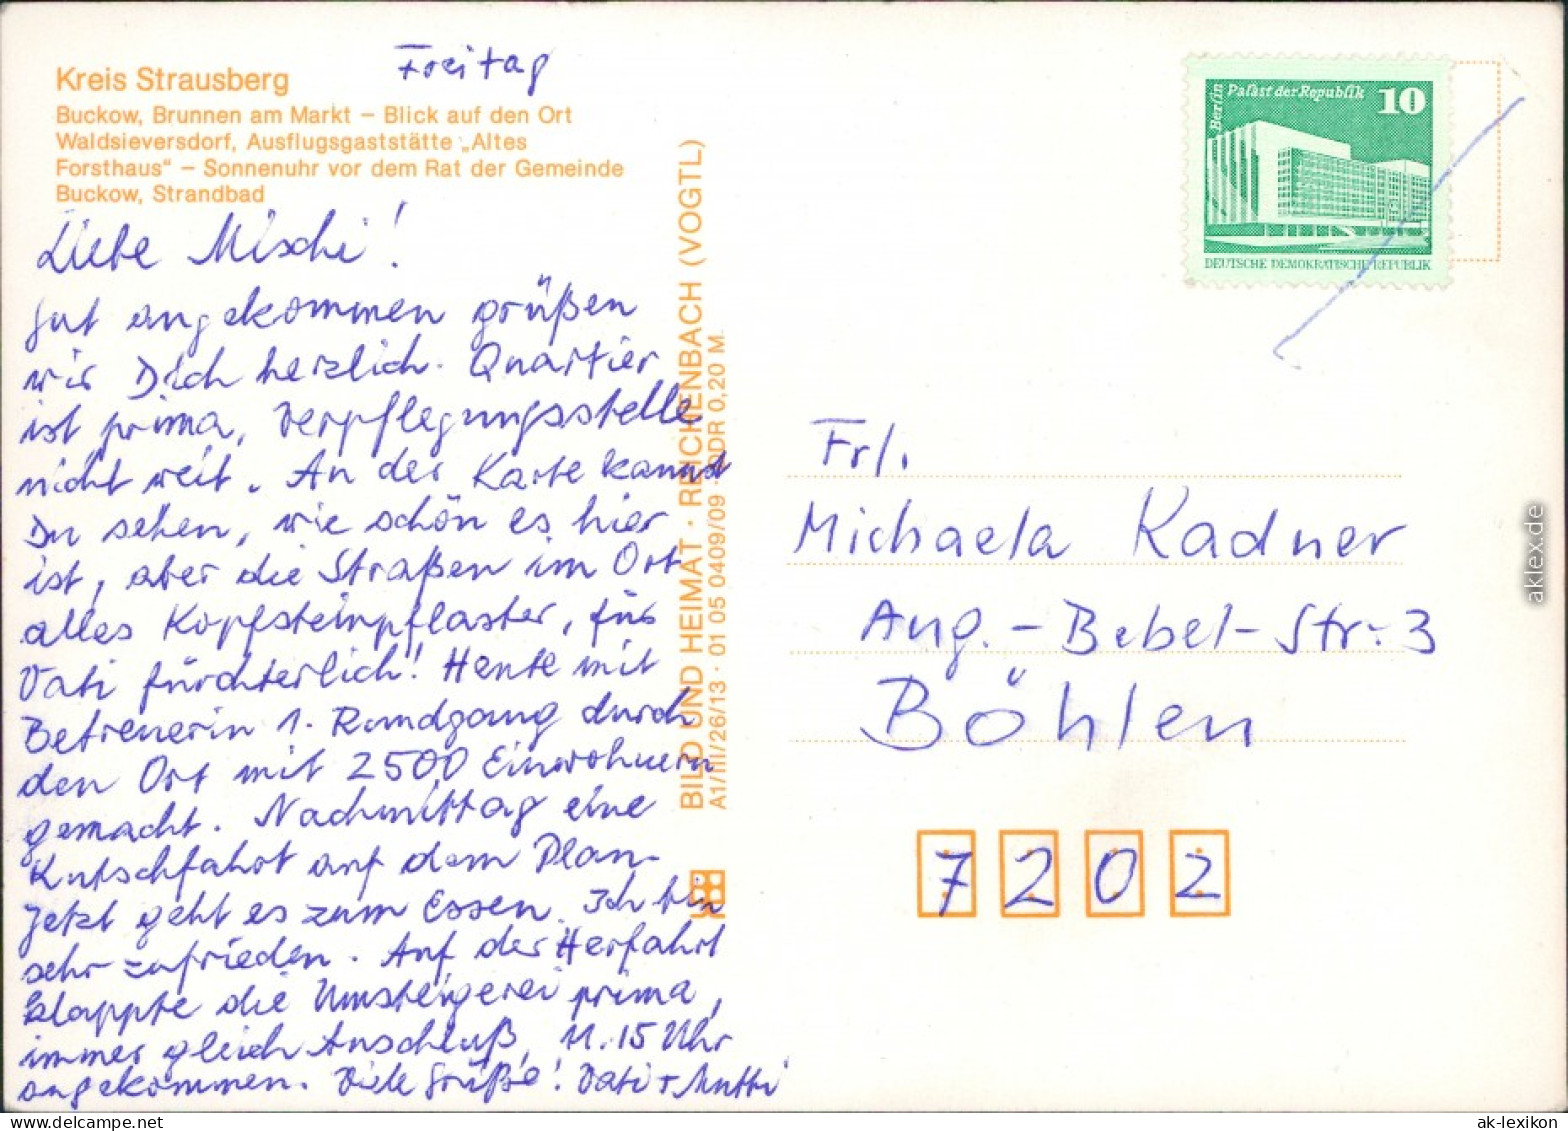 Freitag
Kreis Strausberg
Buckow, Brunnen am Markt – Blick auf den Ort
Waldsieversdorf, Ausflugsgaststätte „Altes
Forsthaus“ – Sonnenuhr vor dem Rat der Gemeinde
Buckow, Strandbad
Liebe Mischi!
gut angekommen grüßen
wir Dich herzlich. Quartier
ist prima, Verpflegungsstelle
nicht weit. An der Karte kannst
Du sehen, wie schön es hier
ist, aber die Straßen im Ort
alles Kopfsteinpflaster, für
Vati fürchterlich! Heute mit
Betreuerin 1. Rundgang durch
den Ort mit 2500 Einwohnern
gemacht. Nachmittag eine
Kutschfahrt auf dem Plan.
Jetzt geht es zum Essen. Ich bin
sehr zufrieden. Auf der Herfahrt
klappte die Umsteigerei prima,
immer gleich Anschluß, 11.15 Uhr
angekommen. Viele Grüße! Vati + Mutti
BILD UND HEIMAT · REICHENBACH (VOGTL)
A1/III/26/13 · 01 05 0409/09 · DDR 0,20 M
Berlin
Palast der Republik
10
DEUTSCHE DEMOKRATISCHE REPUBLIK
Frl.
Michaela Kadner
Aug.-Bebel-Str. 3
Böhlen
7202
aklex.de
ak-lexikon